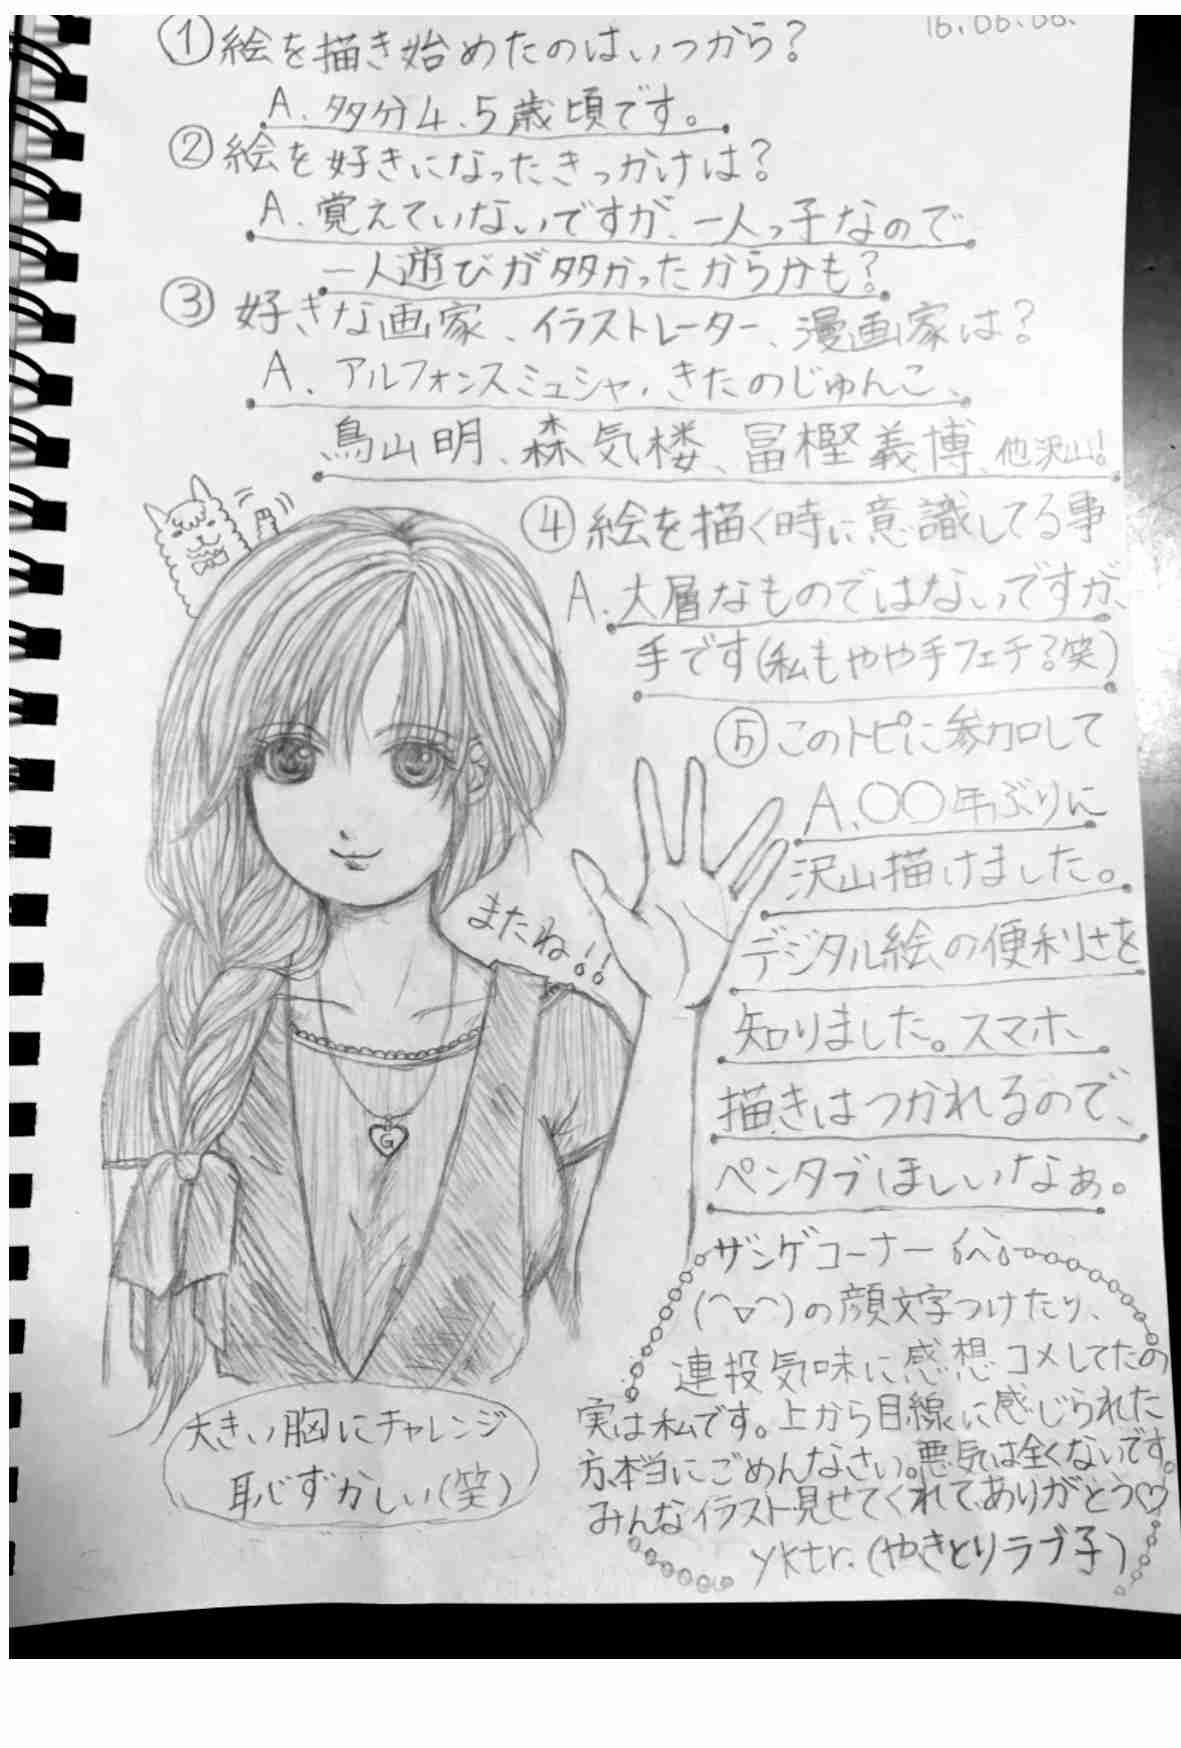 16.06.06.
①絵を描き始めたのはいつから?
A.多分4、5歳頃です。
②絵を好きになったきっかけは?
A.覚えていないですが、一人っ子なので
一人遊びが多かったからかも?
③好きな画家、イラストレーター、漫画家は?
A.アルフォンスミュシャ、きたのじゅんこ、
鳥山明、森気楼、冨樫義博、他沢山!
④絵を描く時に意識してる事
A.大層なものではないですが、
手です(私もやや手フェチ?笑)
⑤このトピに参加して
A.〇〇年ぶりに
沢山描けました。
デジタル絵の便利さを
知りました。スマホ
描きはつかれるので、
ペンタブほしいなぁ。
またね!!
G
大きい胸にチャレンジ
恥ずかしい(笑)
ザンゲコーナー
(^▽^)の顔文字つけたり、
連投気味に感想コメしてたの
実は私です。上から目線に感じられた
方、本当にごめんなさい。悪気は全くないです。
みんなイラスト見せてくれて、ありがとう♡
yktr.(やきとりラブ子)